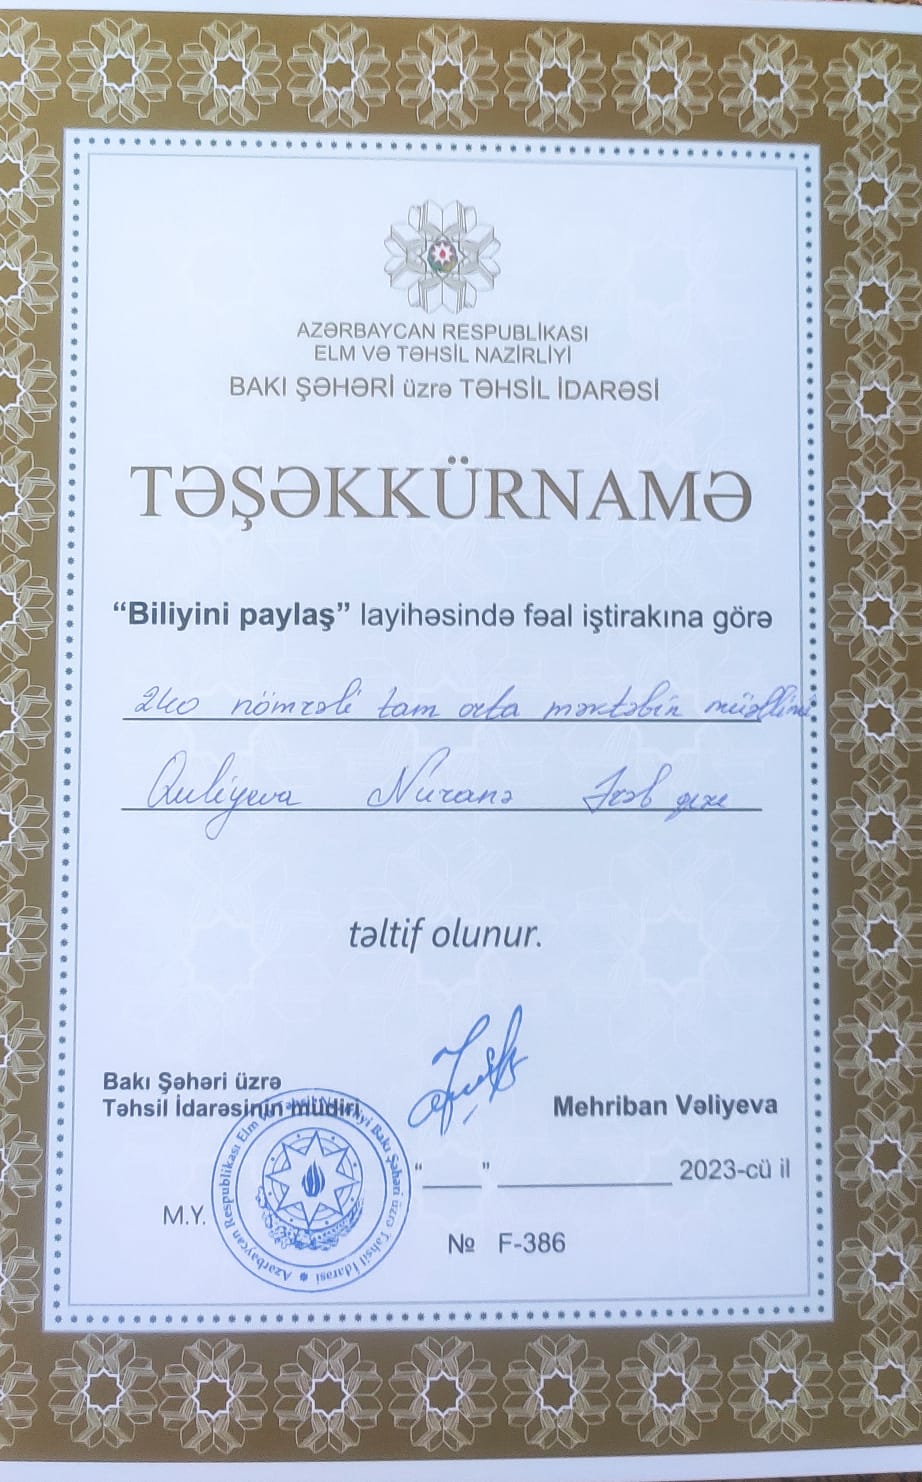 AZƏRBAYCAN RESPUBLİKASI
ELM VƏ TƏHSİL NAZİRLİYİ
BAKI ŞƏHƏRİ üzrə TƏHSİL İDARƏSİ
TƏŞƏKKÜRNAMƏ
“Biliyini paylaş” layihəsində fəal iştirakına görə
240 nömrəli tam orta məktəbin müəllimi
Quliyeva Nuranə qızı
təltif olunur.
Bakı Şəhəri üzrə
Təhsil İdarəsinin müdiri
Mehriban Vəliyeva
“____” ____________ 2023-cü il
M.Y.
№ F-386
Azərbaycan Respublikası Elm və Təhsil Nazirliyi Bakı Şəhəri üzrə Təhsil İdarəsi